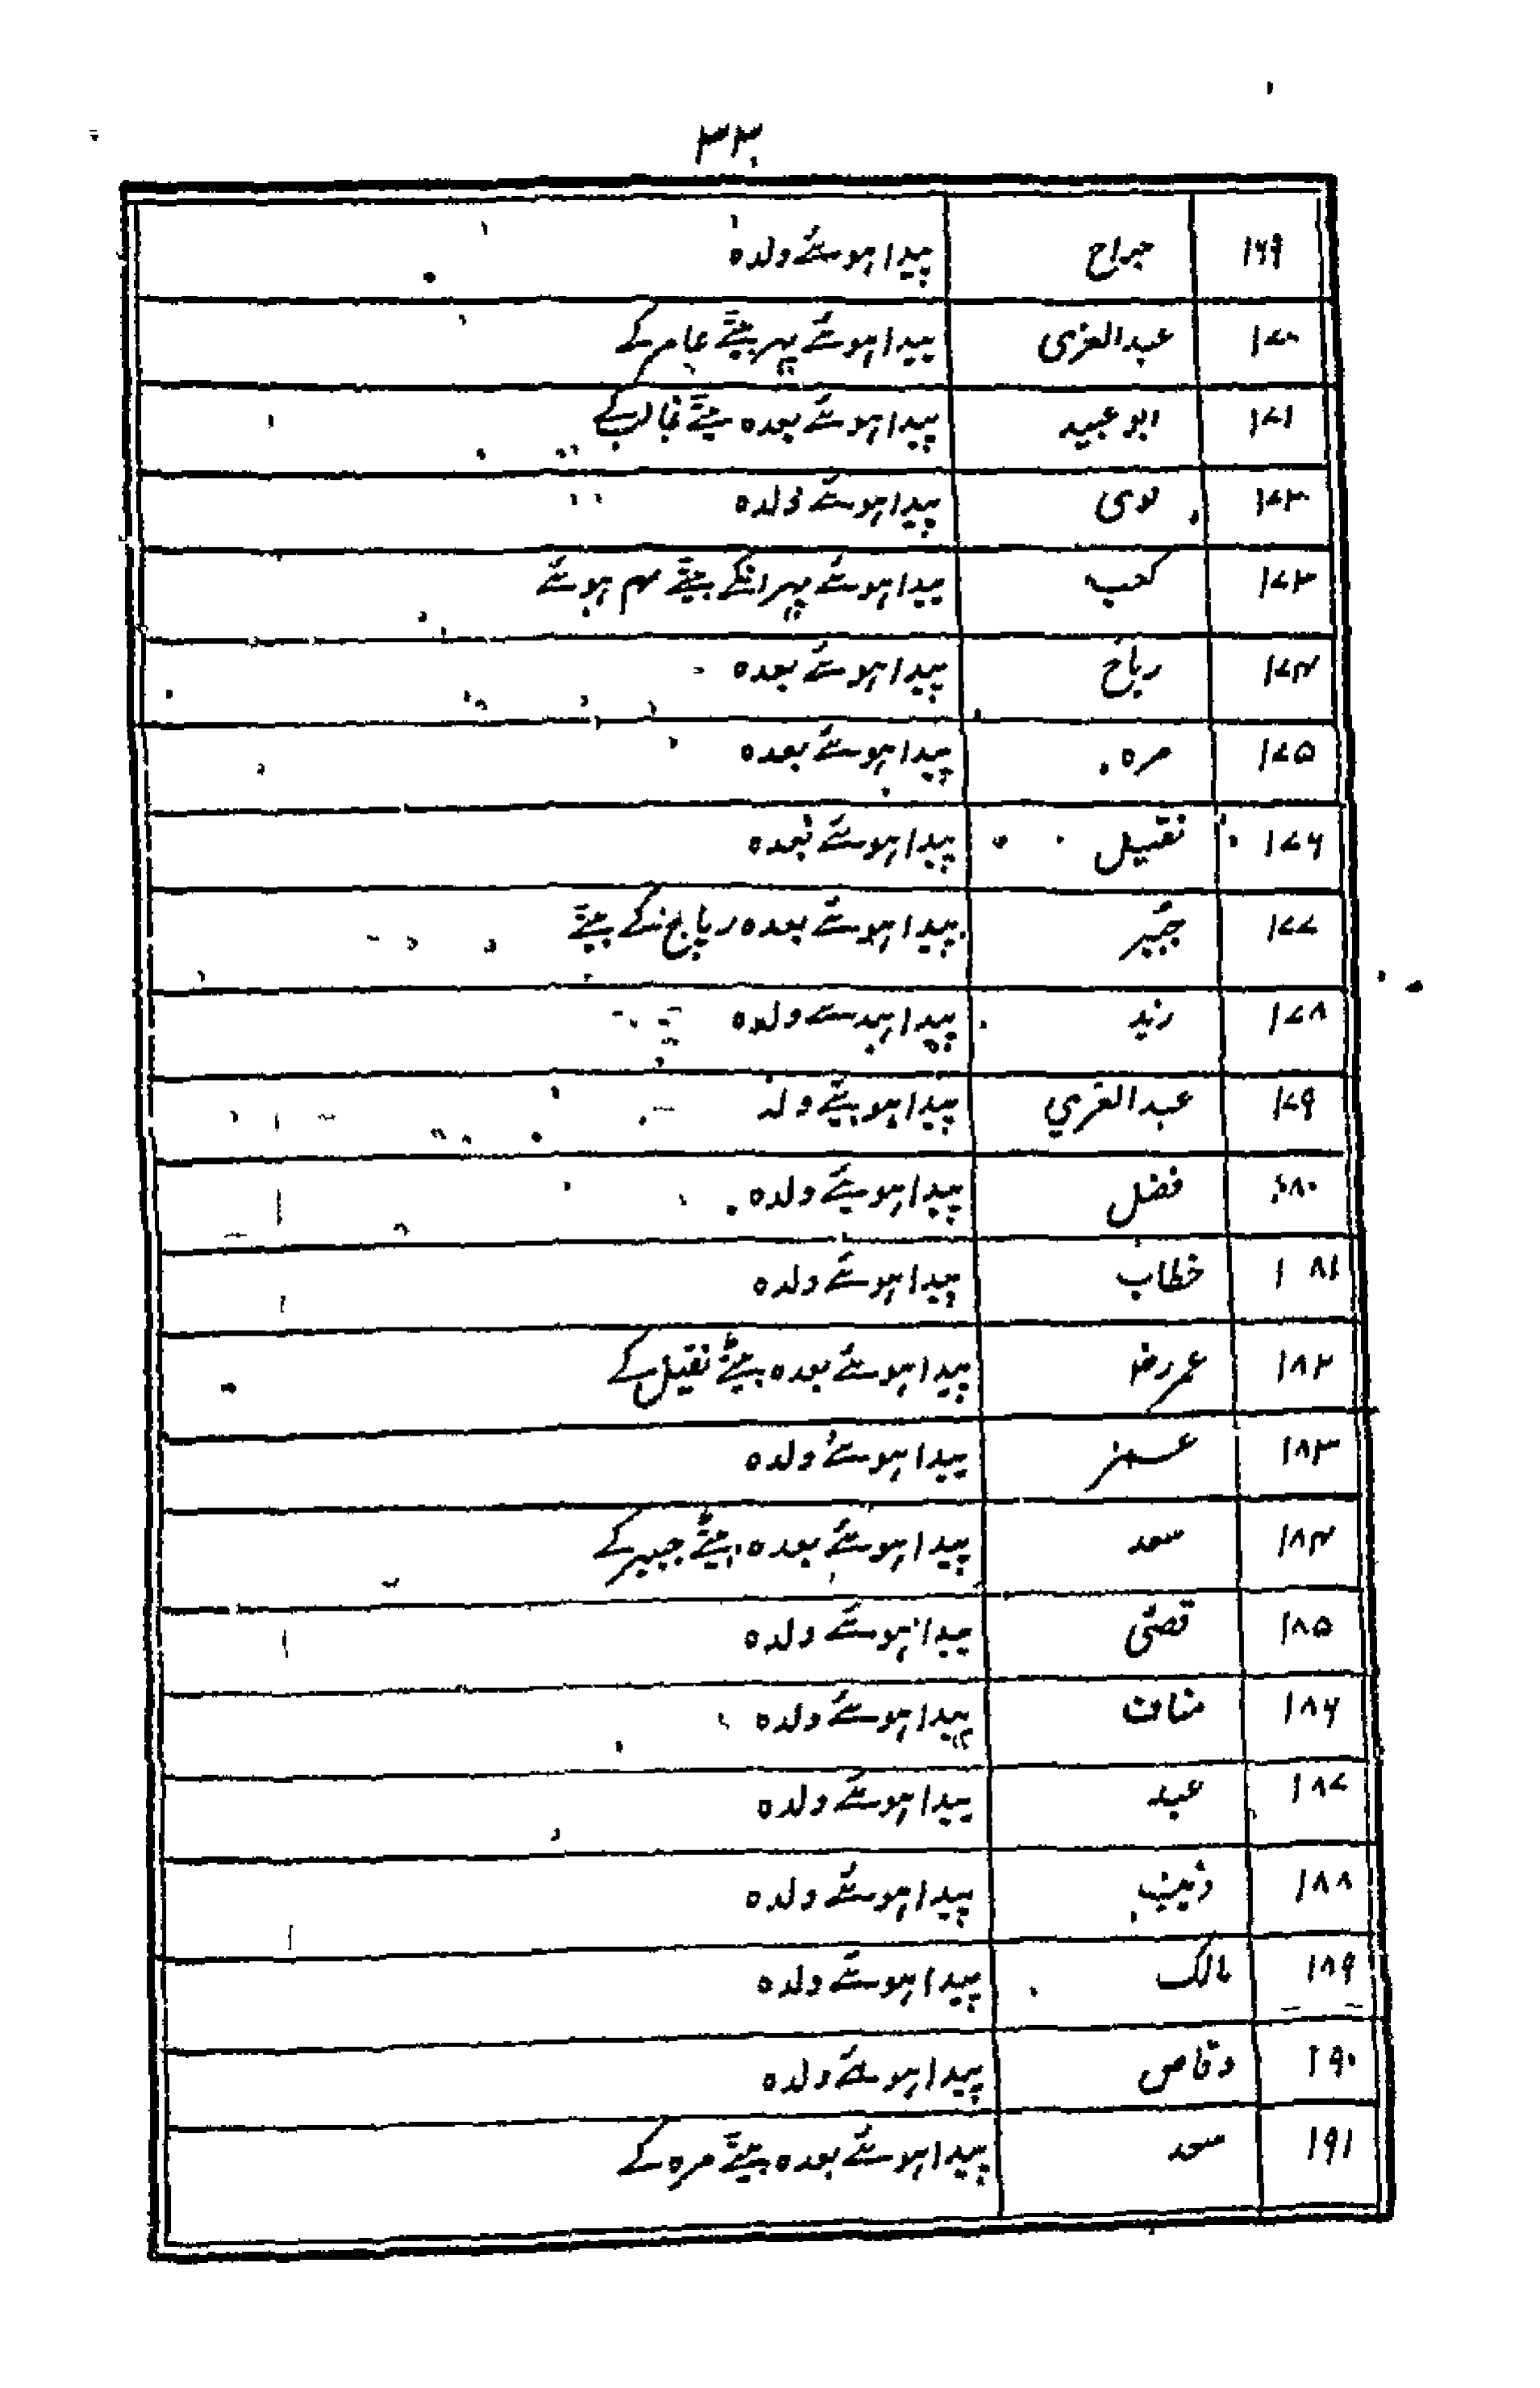 ۳۳
۱۶۹ جراح پیدا ہوئے ولدہ
۱۷۰ عبدالعزی پیدا ہوئے پہر بیٹے عامر کے
۱۷۱ ابو عبید پیدا ہوئے بعدہ بیٹے غالب کے
۱۷۲ لوی پیدا ہوئے ولدہ
۱۷۳ کعب پیدا ہوئے پہر انکے بیٹے ہوئے
۱۷۴ ریاح پیدا ہوئے بعدہ
۱۷۵ مرہ پیدا ہوئے بعدہ
۱۷۶ نفیل پیدا ہوئے بعدہ
۱۷۷ جبیر پیدا ہوئے بعدہ ریاح کے بیٹے
۱۷۸ زید پیدا ہوئے ولدہ
۱۷۹ عبدالعزي پیدا ہوئے ولد
۱۸۰ فضل پیدا ہوئے ولدہ
۱۸۱ خطاب پیدا ہوئے ولدہ
۱۸۲ عمر رض پیدا ہوئے بعدہ بیٹے نفیل کے
۱۸۳ پیدا ہوئے ولدہ
۱۸۴ سعد پیدا ہوئے بعدہ بیٹے جبیر کے
۱۸۵ قصئی پیدا ہوئے ولدہ
۱۸۶ مناف پیدا ہوئے ولدہ
۱۸۷ عبد پیدا ہوئے ولدہ
۱۸۸ پیدا ہوئے ولدہ
۱۸۹ مالک پیدا ہوئے ولدہ
۱۹۰ وقاص پیدا ہوئے ولدہ
۱۹۱ سعد پیدا ہوئے بعدہ بیٹے مرہ کے